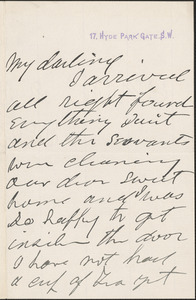 17, HYDE PARK GATE. S.W.
My darling
I arrived
all right found
Everything quiet
and the Servants
were cleaning
our dear sweet
home and I was
so happy to get
inside the door
I have not had
a cup of tea yet